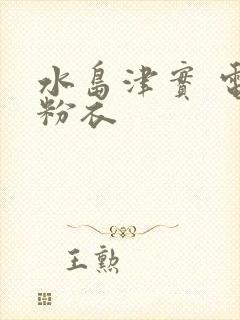 水島津實
粉衣
王勲